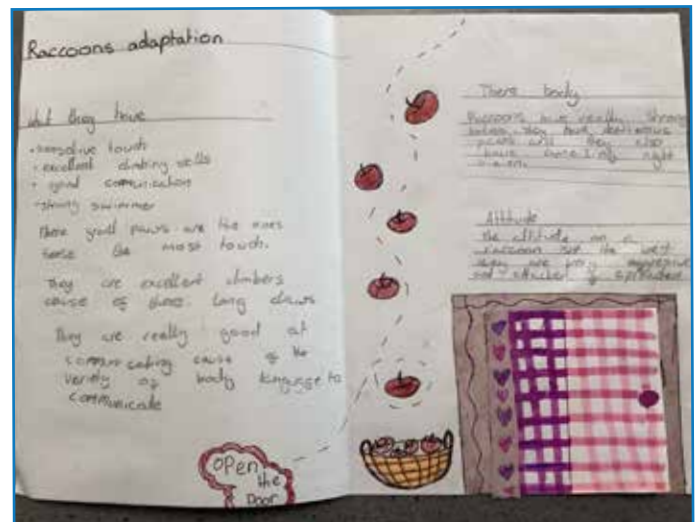 Raccoons adaptation
What they have
• sensative touch
• excellent climbing skills
• good communication
• strong swimmer
There front paws are the ones
sense the most touch.
They are excellent climbers
cause of there long claws
They are really good at
communicating cause of the
variety of body language to
communicate
OPen
the
Door
There body
Raccoons have really strong
bodies, they have
paws and they also
have night
vision.
Attitude
the attitude on a
raccoon the
they are very aggressive
and attacker if